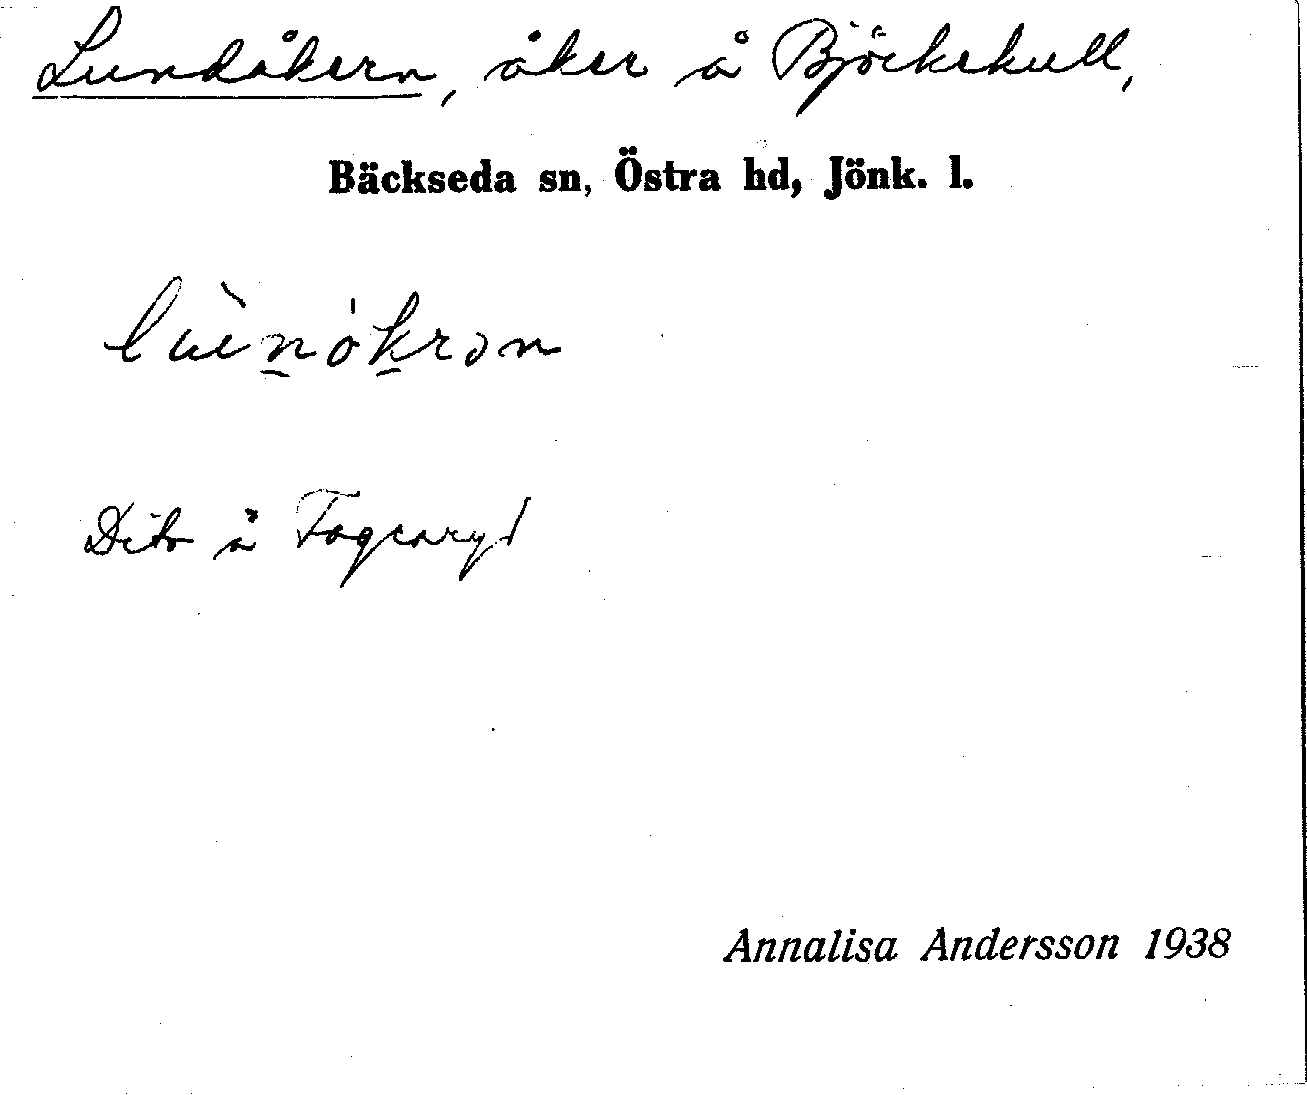 Lundåkern, åker å Björkekull,
Bäckseda sn, Östra hd, Jönk. l.
Dito å Fagcaryd
Annalisa Andersson 1938